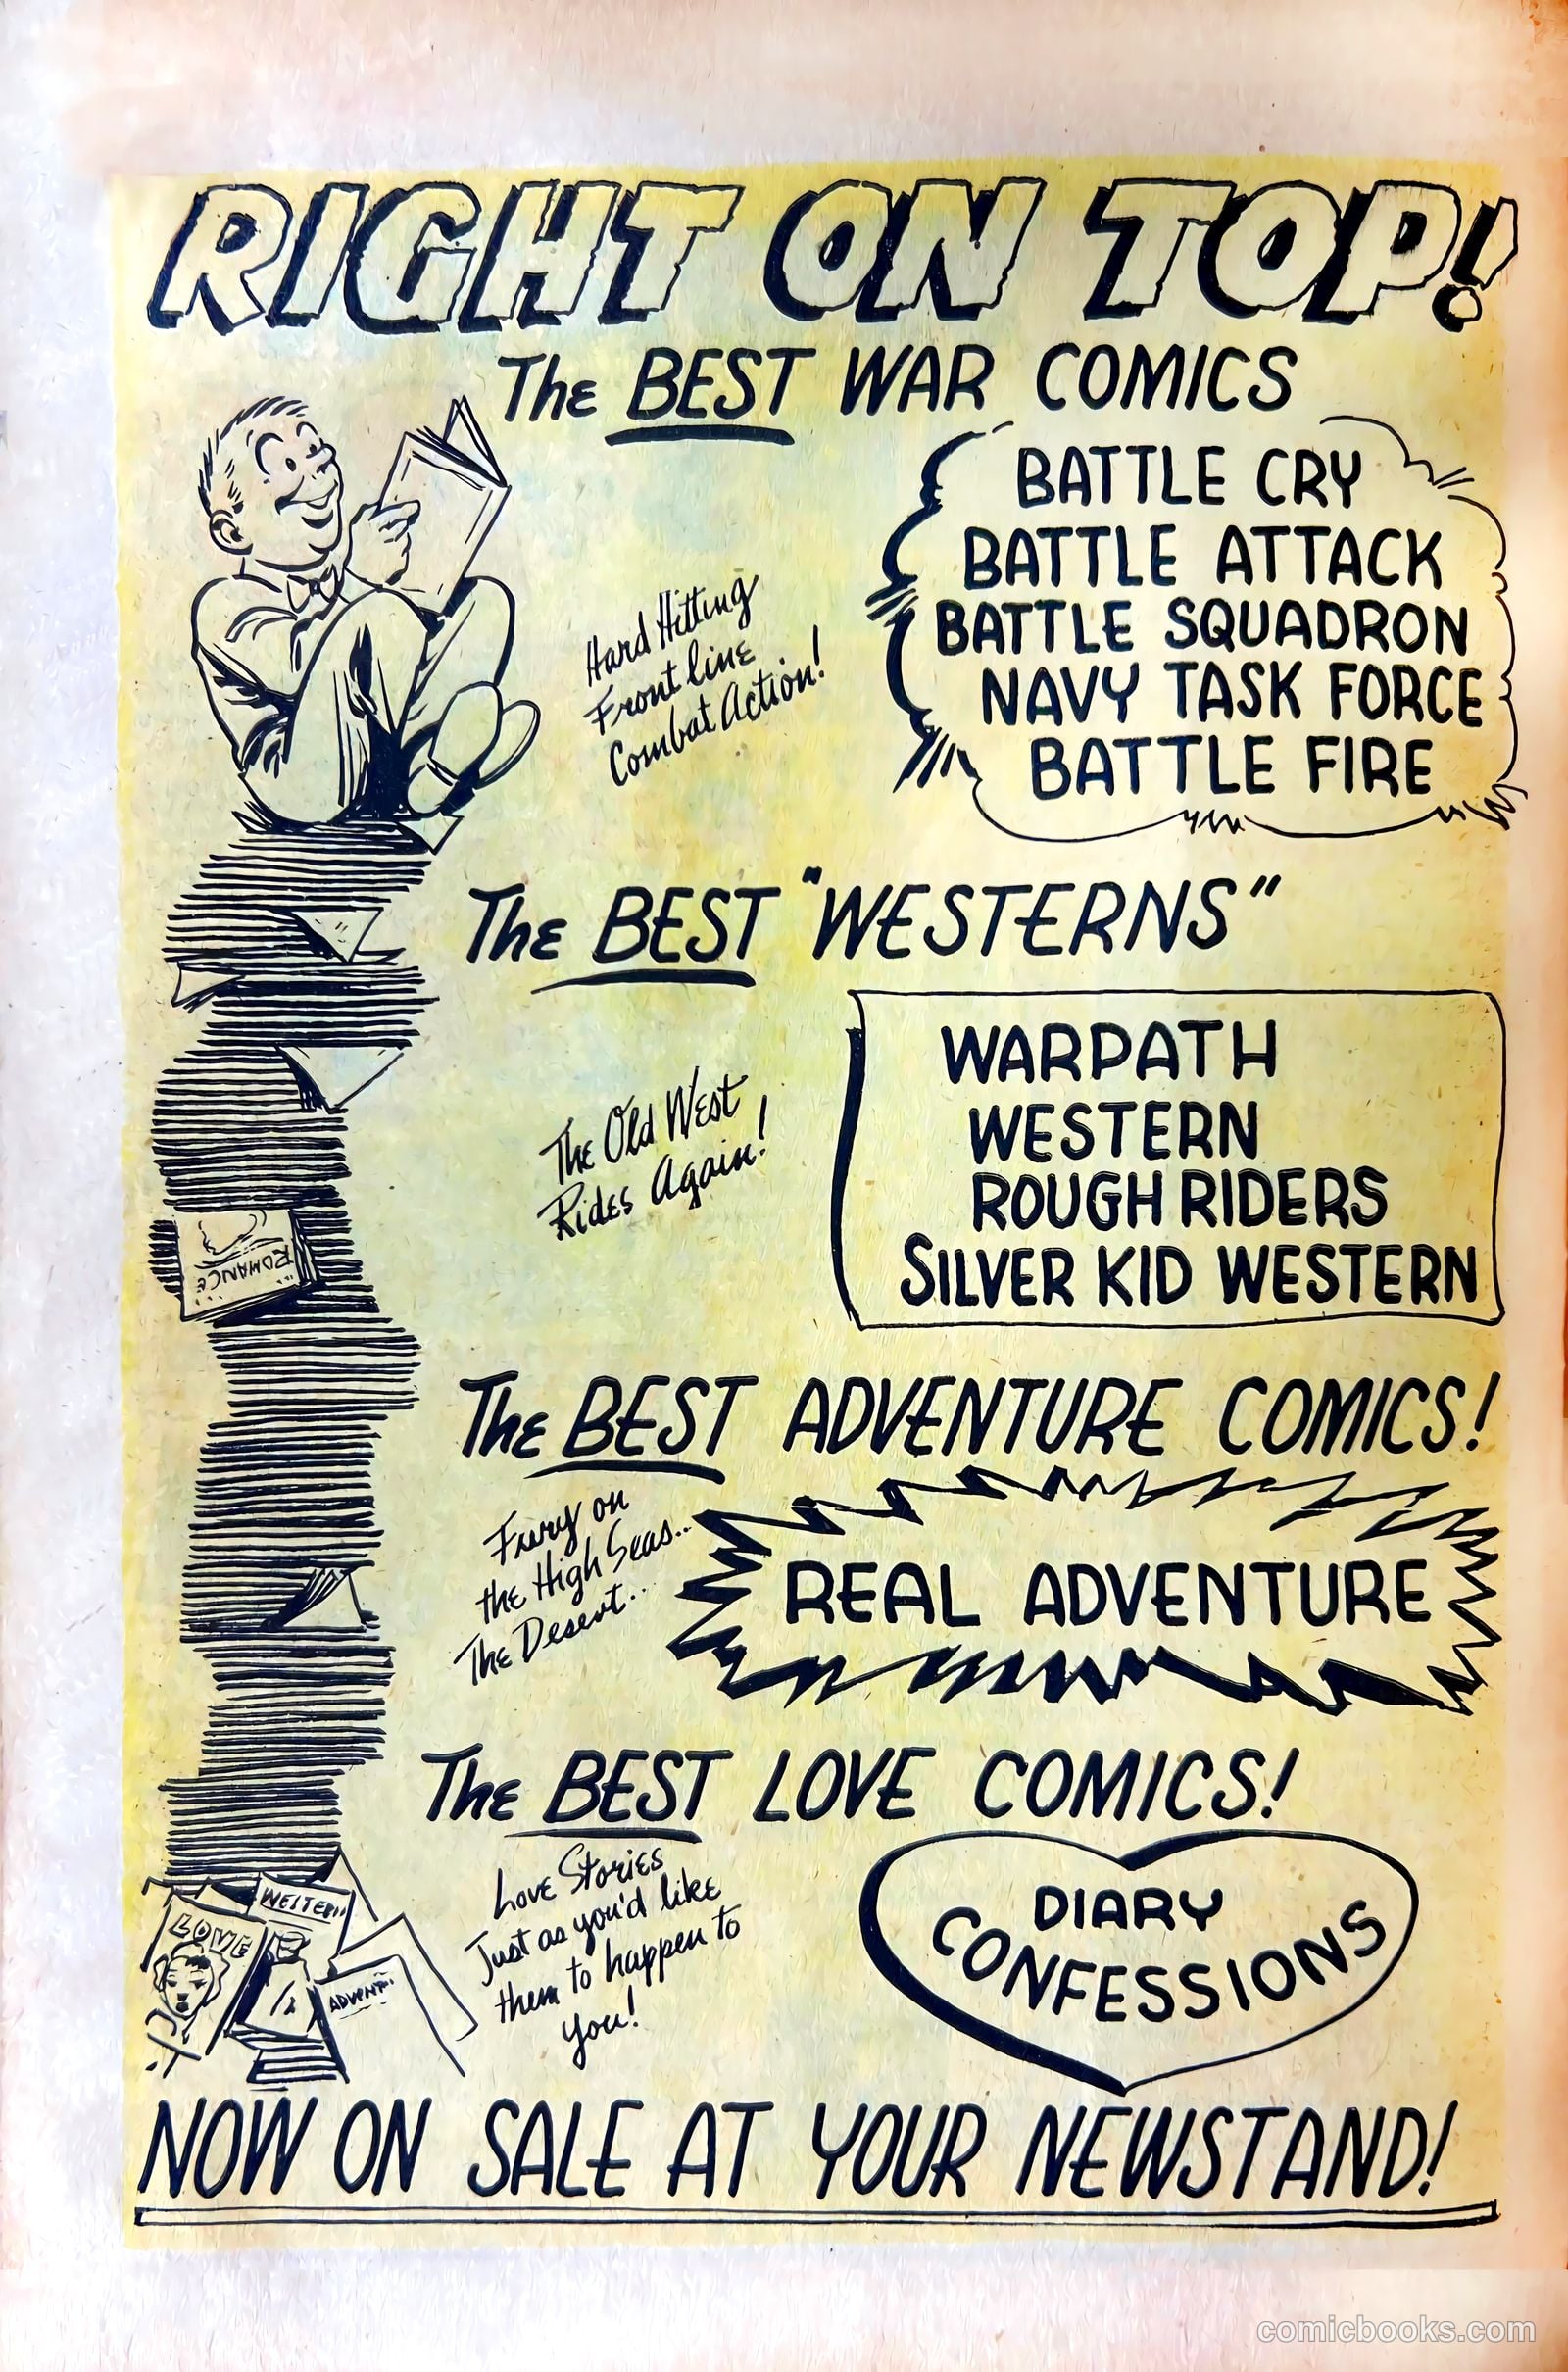 RIGHT ON TOP!
The BEST WAR COMICS
Hard Hitting
Front line
Combat Action!
BATTLE CRY
BATTLE ATTACK
BATTLE SQUADRON
NAVY TASK FORCE
BATTLE FIRE
The BEST "WESTERNS"
The Old West
Rides Again!
WARPATH
WESTERN
ROUGH RIDERS
SILVER KID WESTERN
ROMANCE
The BEST ADVENTURE COMICS!
Fury on
the High Seas..
The Desert...
REAL ADVENTURE
The BEST LOVE COMICS!
Love Stories
Just as you'd like
them to happen to
you!
DIARY
CONFESSIONS
WESTERN
LOVE
NOW ON SALE AT YOUR NEWSTAND!
comicbooks.com